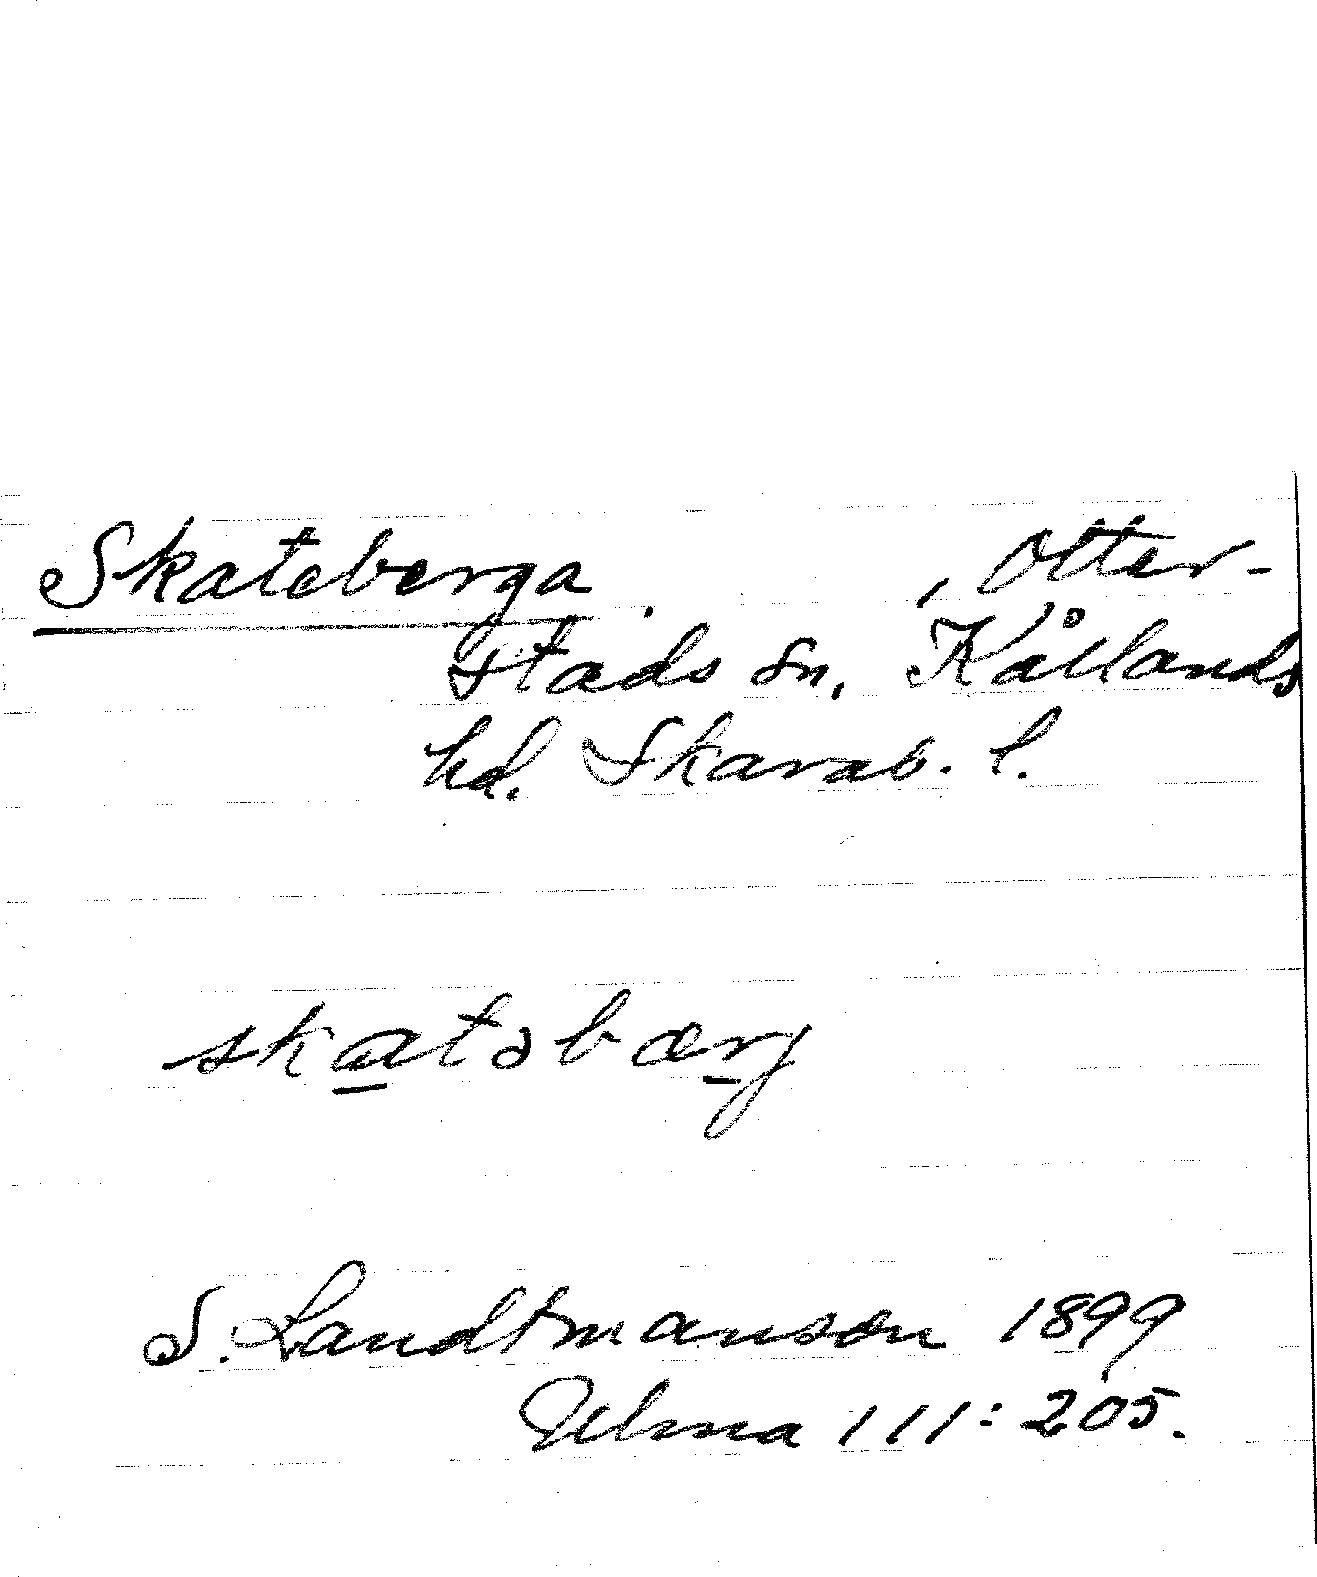 Skateberga , Otter-
stads sn, Kållands
hd. Skarab. l.
skatəbærj
S. Landtmanson 1899
Ulma 111:205.